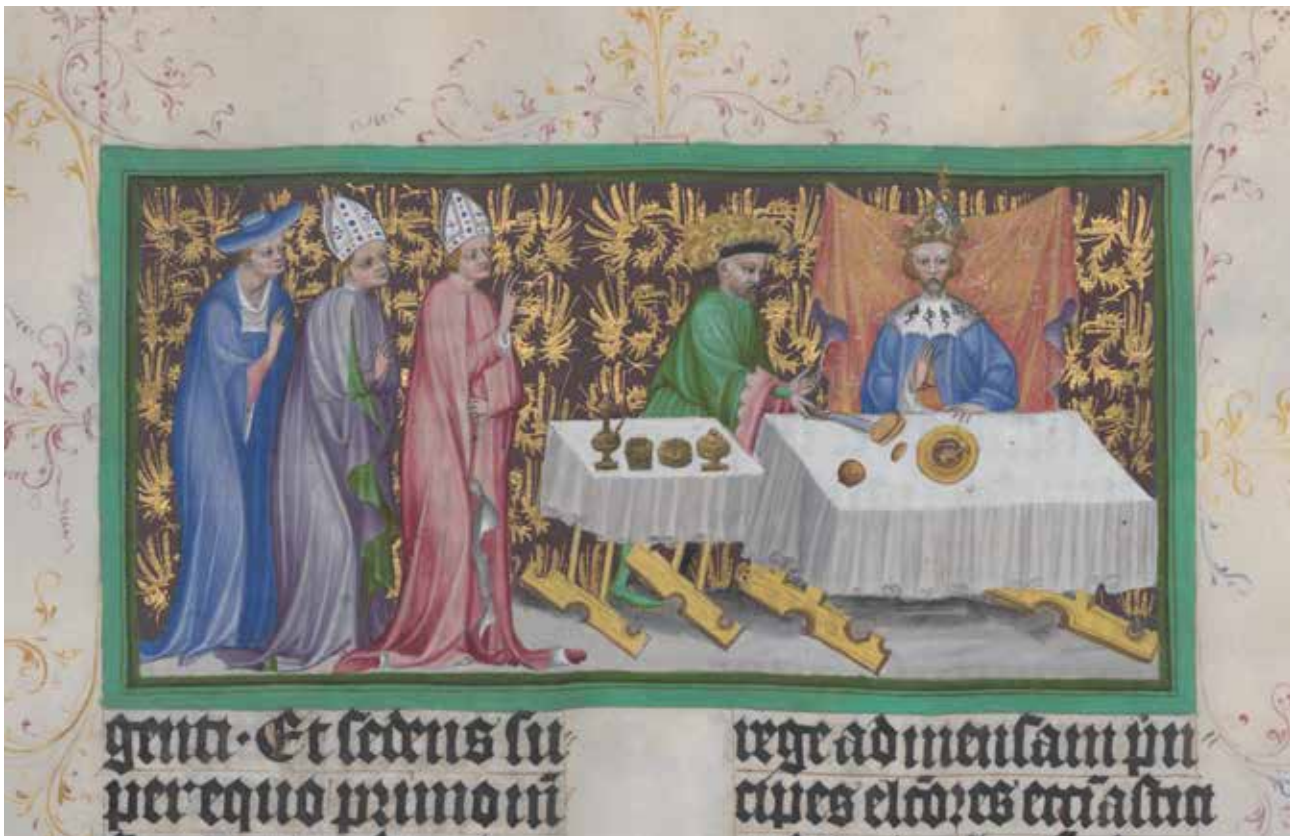 genti · Et sedens su
per equo primo in
rege ad mensam pri
cipes elcores ecciastici